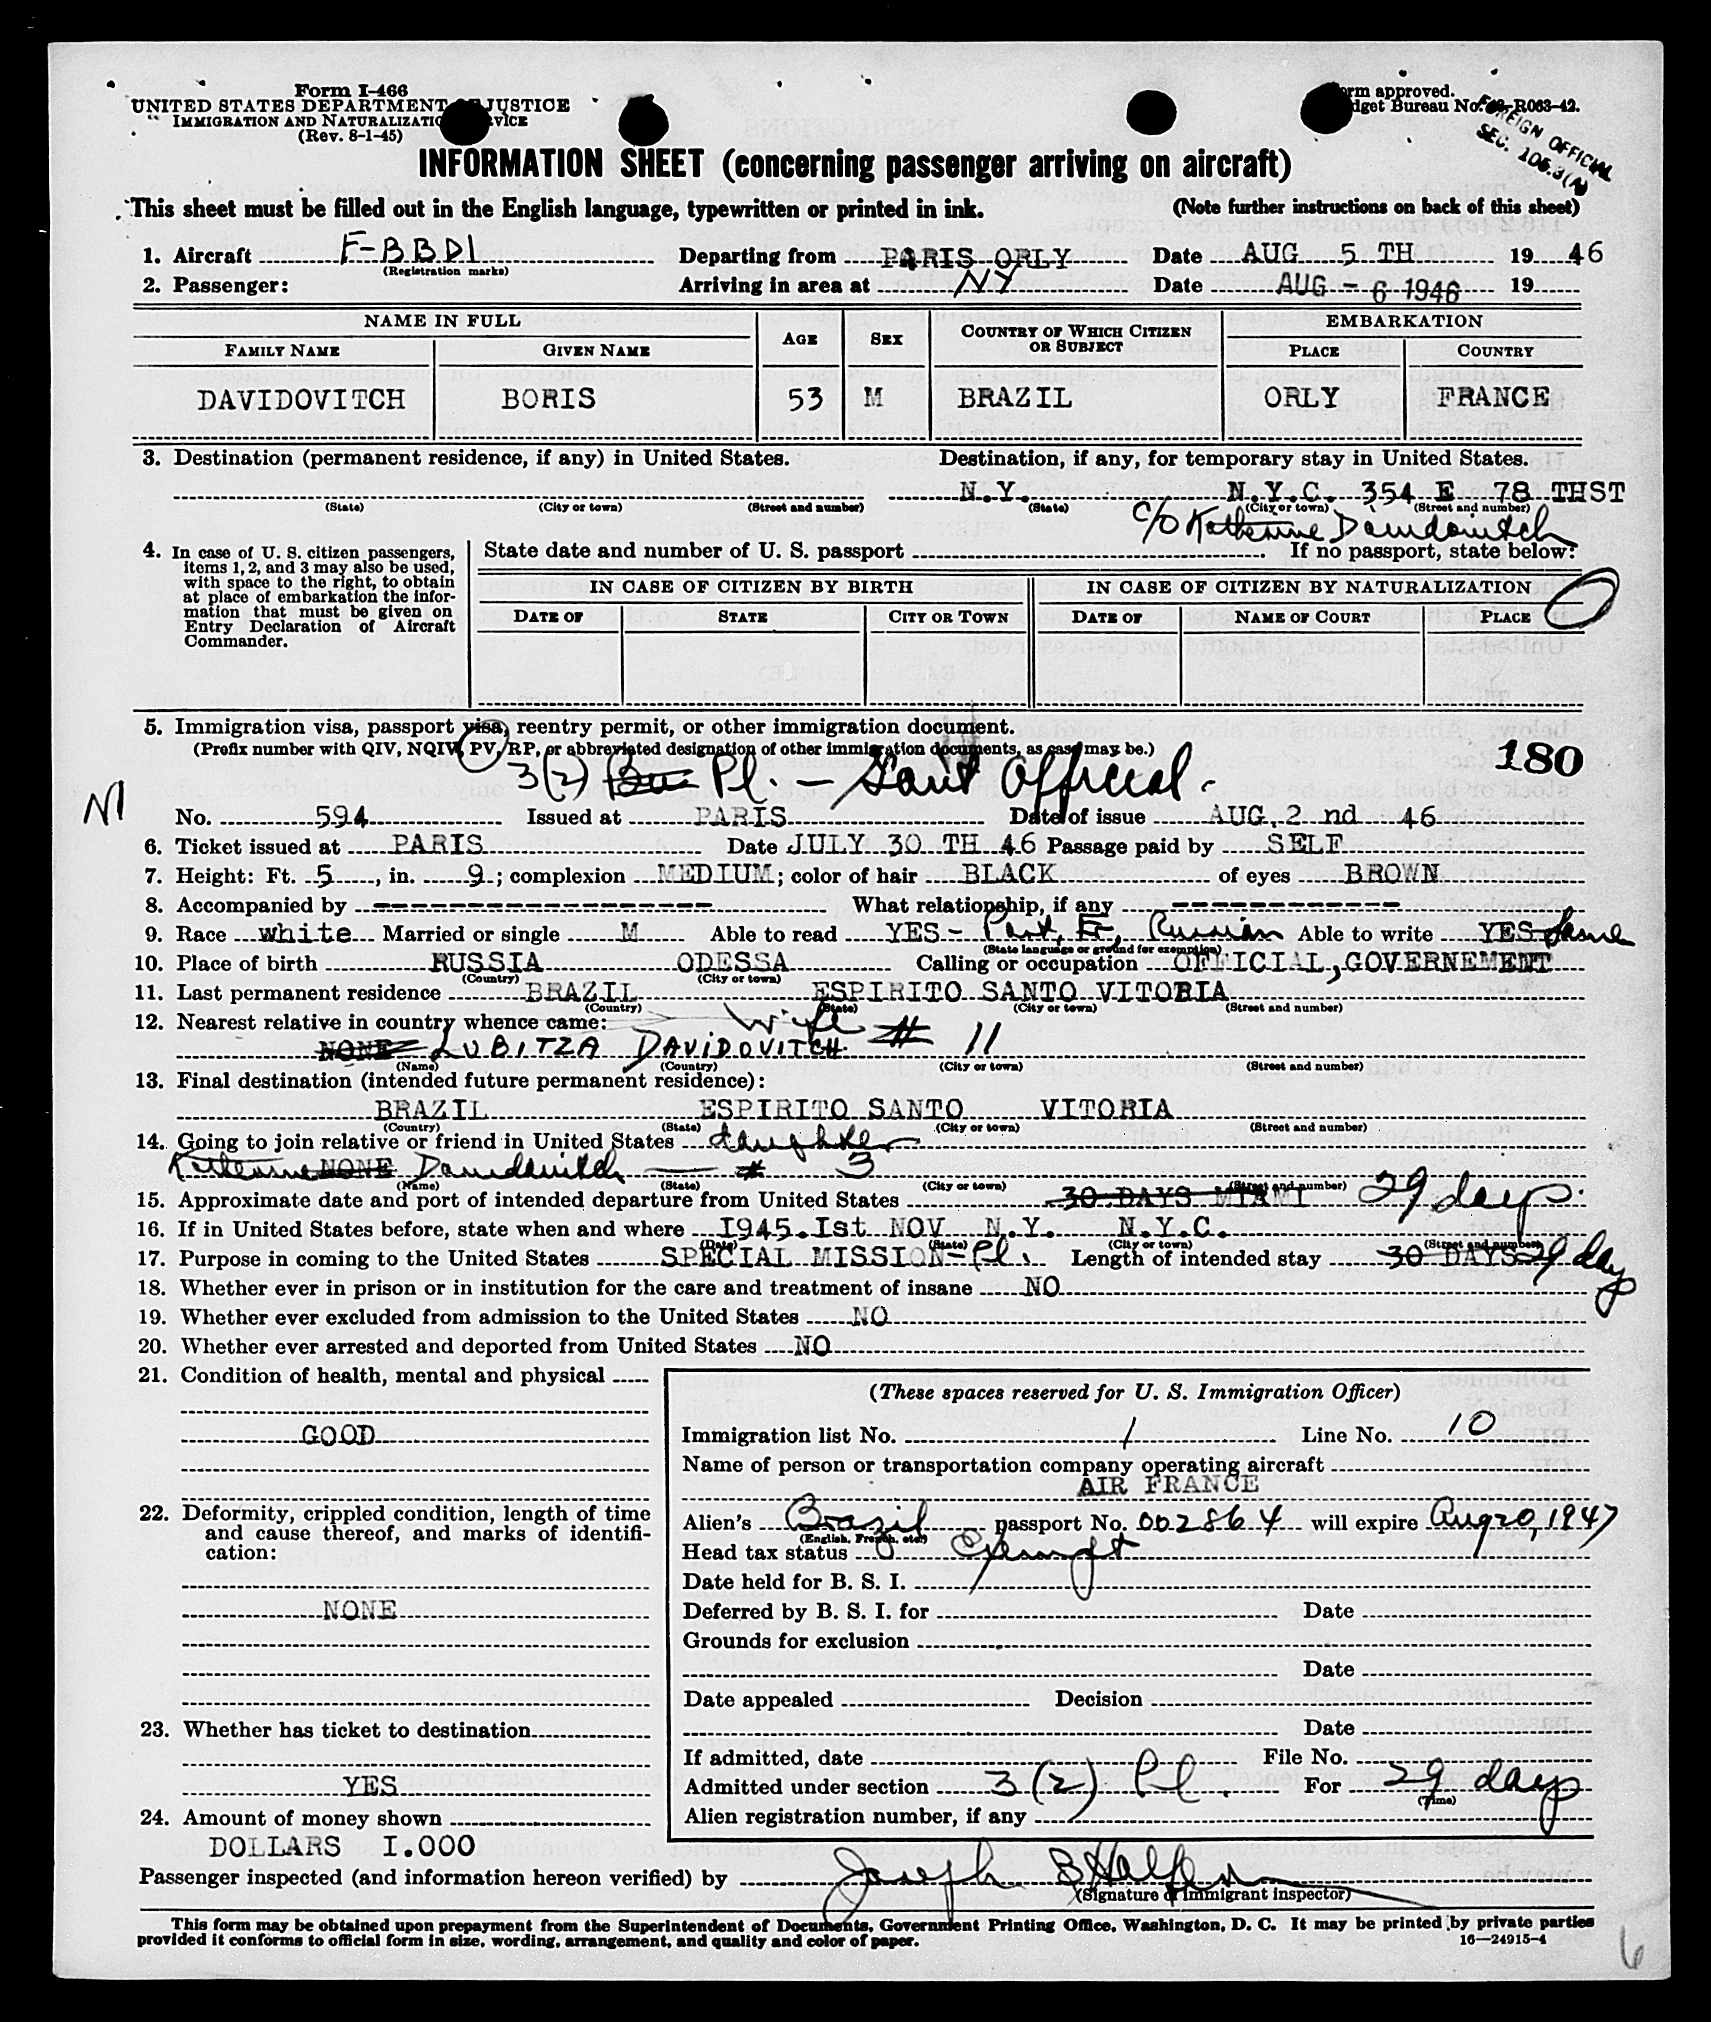 Form I-466
UNITED STATES DEPARTMENT OF JUSTICE
IMMIGRATION AND NATURALIZATION SERVICE
(Rev. 8-1-45)
Form approved.
Budget Bureau No. R063-42.
FOREIGN OFFICIAL
SEC. 105.3(A)
INFORMATION SHEET (concerning passenger arriving on aircraft)
This sheet must be filled out in the English language, typewritten or printed in ink. (Note further instructions on back of this sheet)
1. Aircraft F-BBDI Departing from PARIS ORLY Date AUG 5 TH 19 46
(Registration marks)
2. Passenger: Arriving in area at NY Date AUG - 6 1946 19
NAME IN FULL AGE SEX COUNTRY OF WHICH CITIZEN OR SUBJECT EMBARKATION
FAMILY NAME GIVEN NAME PLACE COUNTRY
DAVIDOVITCH BORIS 53 M BRAZIL ORLY FRANCE
3. Destination (permanent residence, if any) in United States. Destination, if any, for temporary stay in United States.
N.Y. N.Y.C. 354 E 78 THST
(State) (City or town) (Street and number) (State) (City or town) (Street and number)
C/O Katherine Davidovitch
4. In case of U. S. citizen passengers, items 1, 2, and 3 may also be used, with space to the right, to obtain at place of embarkation the information that must be given on Entry Declaration of Aircraft Commander.
State date and number of U. S. passport . If no passport, state below:
IN CASE OF CITIZEN BY BIRTH IN CASE OF CITIZEN BY NATURALIZATION
DATE OF STATE CITY OR TOWN DATE OF NAME OF COURT PLACE
5. Immigration visa, passport visa, reentry permit, or other immigration document.
(Prefix number with QIV, NQIV, PV, RP, or abbreviated designation of other immigration documents, as case may be.)
180
3(2) Pl. - Govt Official.
NI
No. 594 Issued at PARIS Date of issue AUG. 2 nd 46
6. Ticket issued at PARIS Date JULY 30 TH 46 Passage paid by SELF
7. Height: Ft. 5, in. 9; complexion MEDIUM; color of hair BLACK of eyes BROWN
8. Accompanied by ---------- What relationship, if any ----------
9. Race white Married or single M Able to read YES - Port, Fr, Russian Able to write YES Same
(State language or ground for exemption)
10. Place of birth RUSSIA ODESSA Calling or occupation OFFICIAL, GOVERNEMENT
(Country) (City or town)
11. Last permanent residence BRAZIL ESPIRITO SANTO VITORIA
(Country) (State) (City or town) (Street and number)
12. Nearest relative in country whence came: Wife
NONE LUBITZA DAVIDOVITCH # 11
(Name) (Country) (City or town) (Street and number)
13. Final destination (intended future permanent residence):
BRAZIL ESPIRITO SANTO VITORIA
(Country) (State) (City or town) (Street and number)
14. Going to join relative or friend in United States daughter
Katherine NONE Davidovitch — # 3
(Name) (State) (City or town) (Street and number)
15. Approximate date and port of intended departure from United States 30 DAYS MIAMI 29 days.
16. If in United States before, state when and where 1945. Ist NOV N.Y. N.Y.C.
(Date) (State) (City or town) (Street and number)
17. Purpose in coming to the United States SPECIAL MISSION - Pl. Length of intended stay 30 DAYS 29 days
18. Whether ever in prison or in institution for the care and treatment of insane NO
19. Whether ever excluded from admission to the United States NO
20. Whether ever arrested and deported from United States NO
21. Condition of health, mental and physical
GOOD
22. Deformity, crippled condition, length of time and cause thereof, and marks of identification:
NONE
23. Whether has ticket to destination
YES
24. Amount of money shown
DOLLARS I.000
(These spaces reserved for U. S. Immigration Officer)
Immigration list No. 1 Line No. 10
Name of person or transportation company operating aircraft
AIR FRANCE
Alien's Brazil passport No. 002864 will expire Aug 20, 1947
(English, French, etc.)
Head tax status Exempt
Date held for B. S. I.
Deferred by B. S. I. for Date
Grounds for exclusion
Date
Date appealed Decision
Date
If admitted, date File No.
Admitted under section 3(2) Pl. For 29 days
(Time)
Alien registration number, if any
Passenger inspected (and information hereon verified) by Joseph B Halpern
(Signature of immigrant inspector)
This form may be obtained upon prepayment from the Superintendent of Documents, Government Printing Office, Washington, D. C. It may be printed by private parties
provided it conforms to official form in size, wording, arrangement, and quality and color of paper. 16—24915-4
6